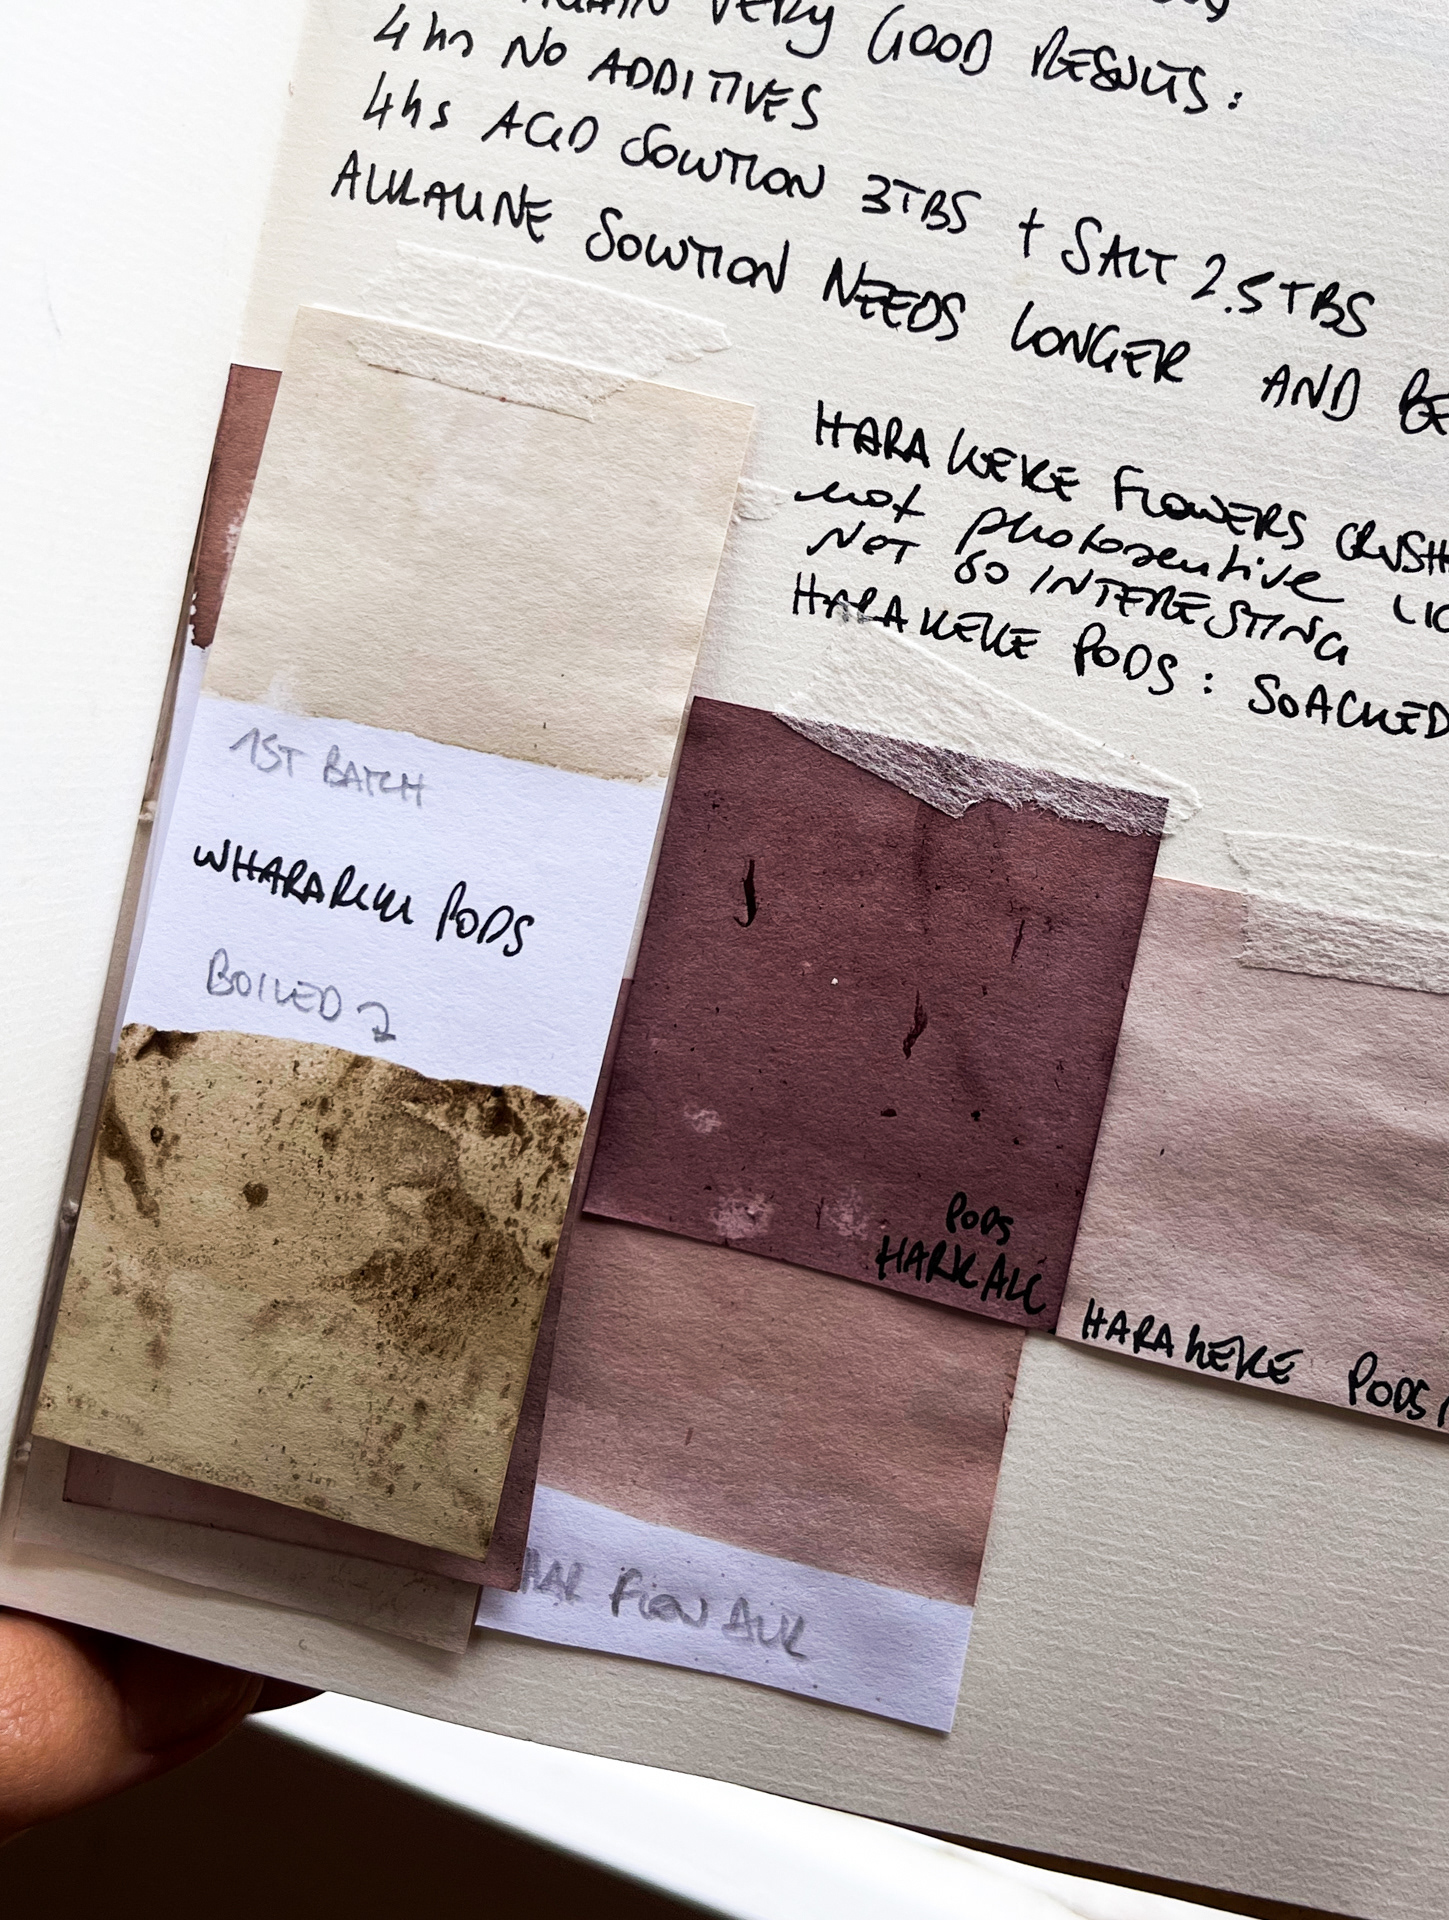 VERY GOOD RESULTS:
4 hs NO ADDITIVES
4hs ACID SOLUTION 3TBS + SALT 2.5 TBS
ALKALINE SOLUTION NEEDS LONGER AND BE
HARAKEKE FLOWERS CRUSH
not photosensitive
NOT SO INTERESTING
HARAKEKE PODS: SOACKED
1ST BATCH
WHARARIKI PODS
BOILED 2
PODS
HARK ALK
HARAKEKE PODS
HAR FLOW ALK